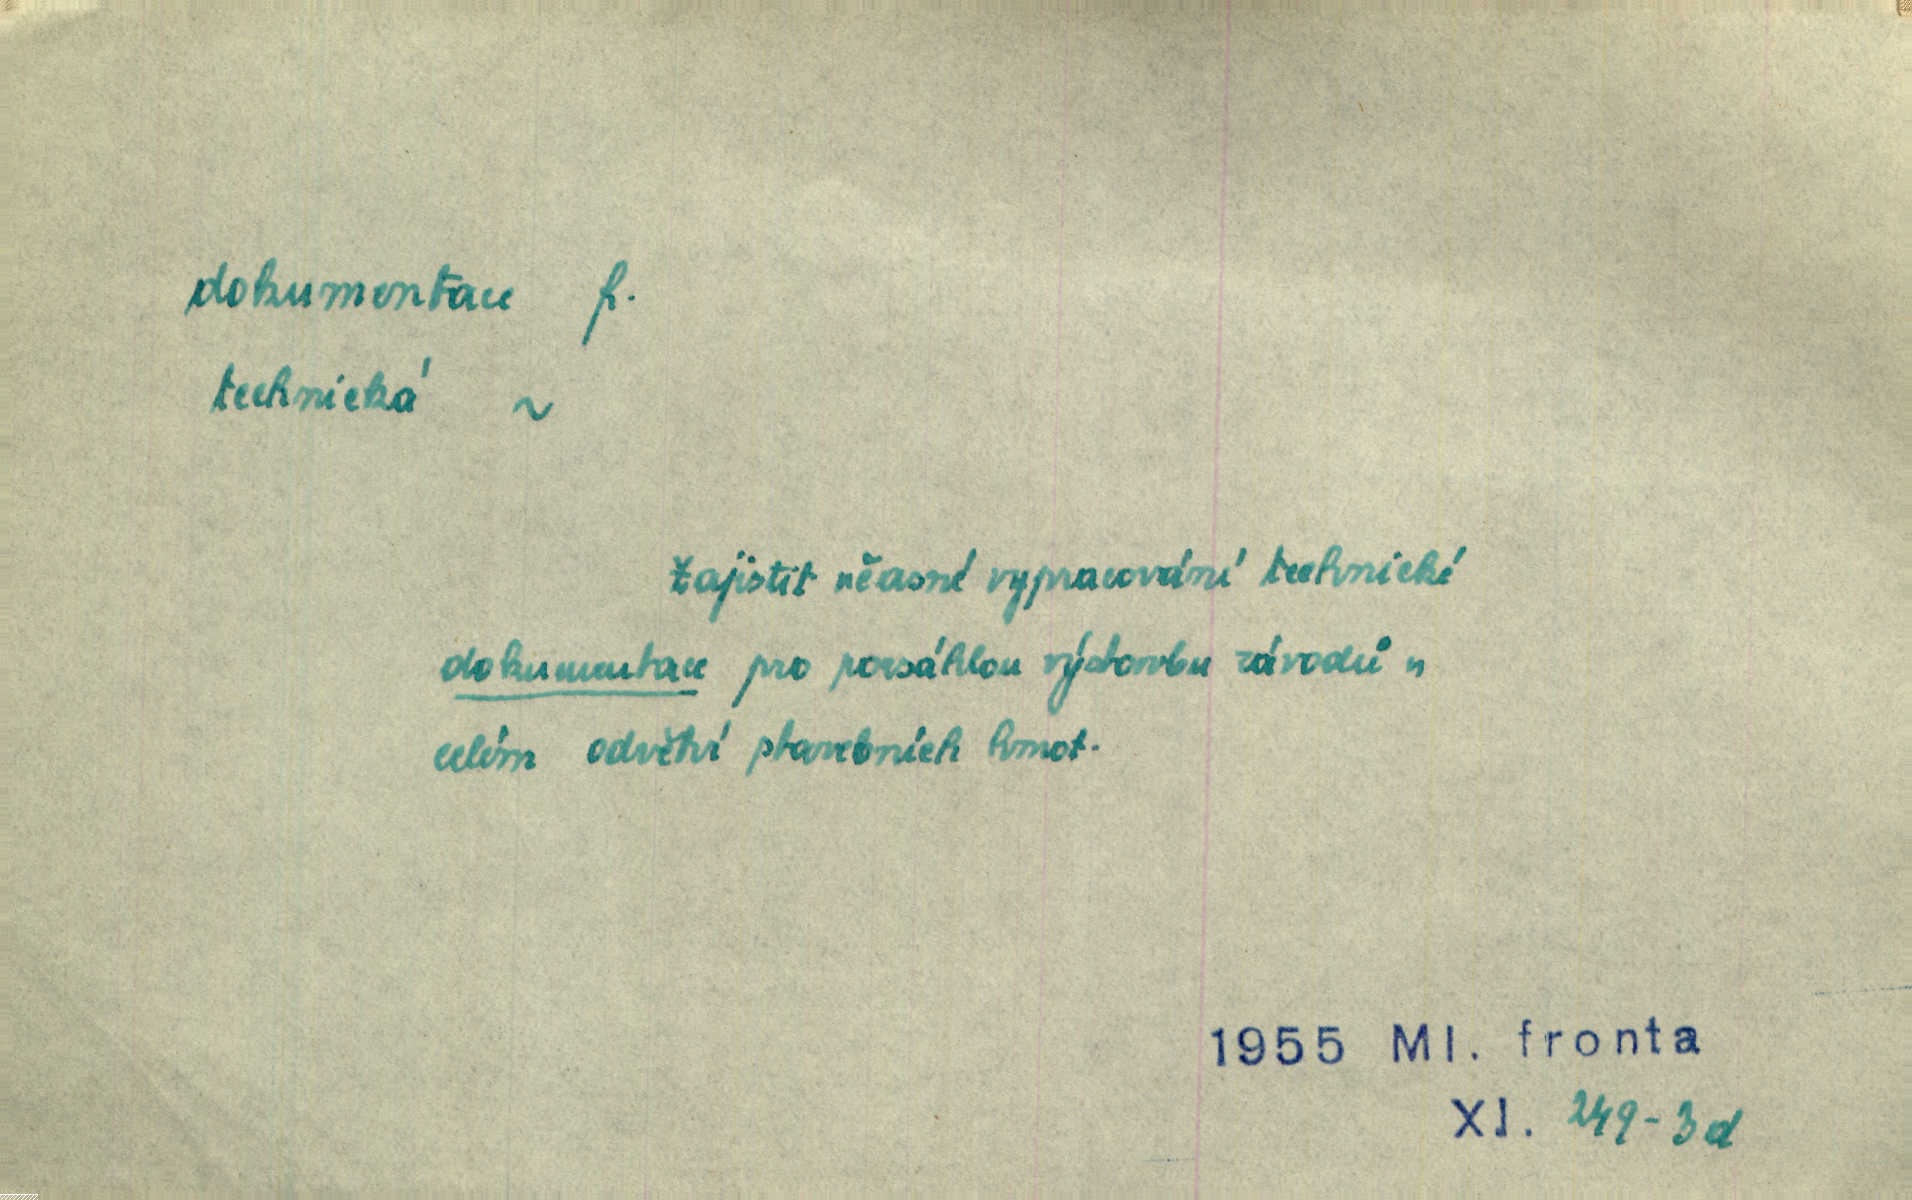 dokumentace f.
technická ~
Zajistit včasné vypracování technické
dokumentace pro rozsáhlou výstavbu závodů v
celém odvětví stavebních hmot.
1955 Ml. fronta
XI. 249-3d